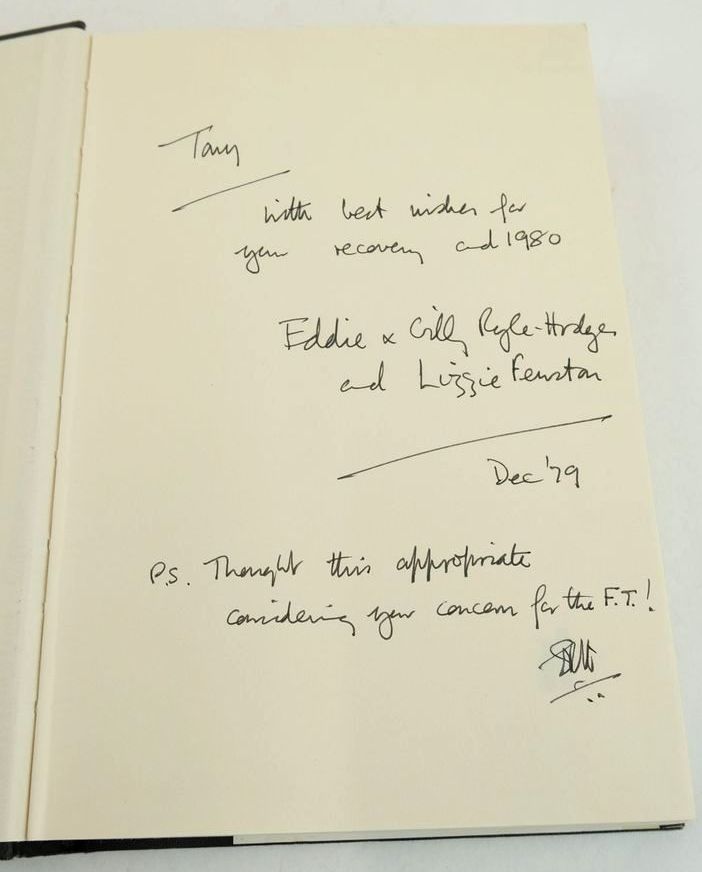 Tony
with best wishes for
your recovery and 1980
Eddie & Gilly Ryle-Hodges
and Lizzie
Dec '79
P.S. Thought this appropriate
considering your concern for the F.T.!